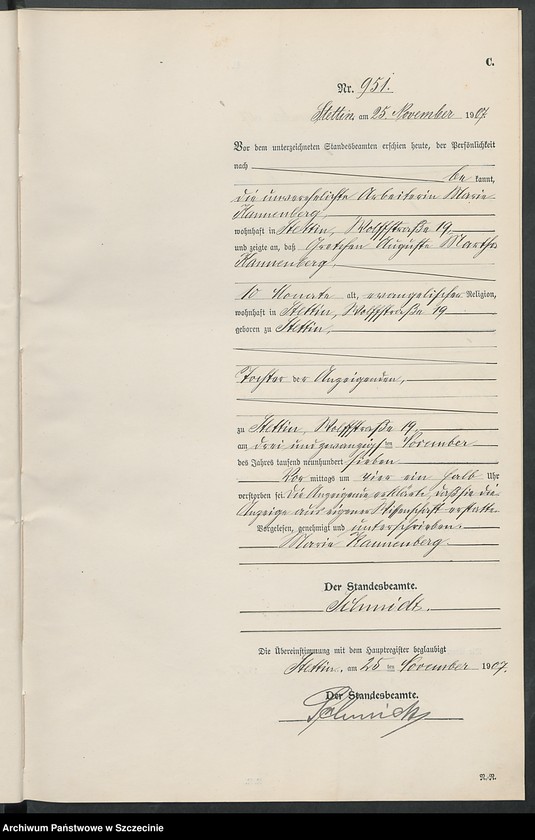 C.
Nr. 951.
Stettin, am 25. November 1907.
Vor dem unterzeichneten Standesbeamten erschien heute, der Persönlichkeit
nach
be kannt,
die unverehelichte Arbeiterin Marie
Kannenberg,
wohnhaft in Stettin, Wolffstraße 19
und zeigte an, daß Gretchen Auguste Martha
Kannenberg,
10 Monate alt, evangelischer Religion,
wohnhaft in Stettin, Wolffstraße 19
geboren zu Stettin,
Tochter der Anzeigenden,
zu Stettin, Wolffstraße 19,
am drei und zwanzigsten November
des Jahres tausend neunhundert sieben
Vor mittags um vier ein halb Uhr
verstorben sei. Die Anzeigende erklärte, daß sie die
Anzeige aus eigener Wissenschaft erstatte.
Vorgelesen, genehmigt und unterschrieben.
Marie Kannenberg
Der Standesbeamte.
Schmidt.
Die Übereinstimmung mit dem Hauptregister beglaubigt
Stettin, am 25 ten November 1907.
Der Standesbeamte.
Schmidt
Archiwum Państwowe w Szczecinie